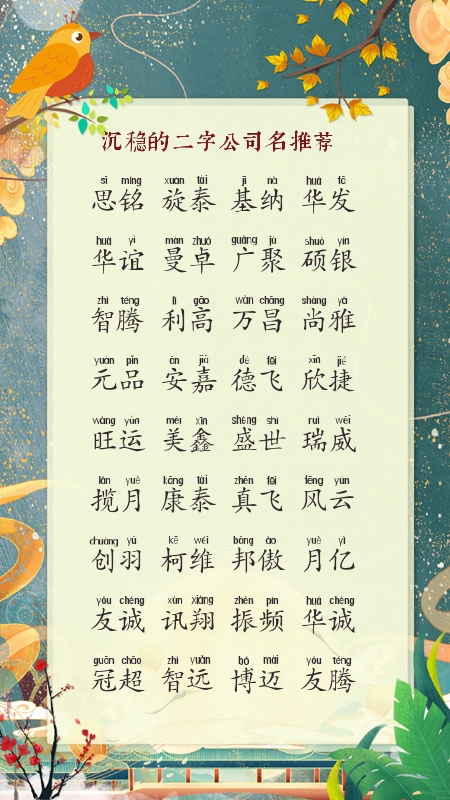 沉稳的二字公司名推荐
sī míng xuán tài jī nà huá fā
思铭 旋泰 基纳 华发
huá yì màn zhuó guǎng jù shuò yín
华谊 曼卓 广聚 硕银
zhì téng lì gāo wàn chāng shàng yǎ
智腾 利高 万昌 尚雅
yuán pǐn ān jiā dé fēi xīn jié
元品 安嘉 德飞 欣捷
wàng yùn měi xīn shéng shì ruì wēi
旺运 美鑫 盛世 瑞威
lǎn yuè kāng tài zhēn fēi fēng yún
揽月 康泰 真飞 风云
chuàng yǔ kē wéi bāng ào yuè yì
创羽 柯维 邦傲 月亿
yǒu chéng xùn xiáng zhèn pín huá chéng
友诚 讯翔 振频 华诚
guān chāo zhì yuǎn bó mài yǒu téng
冠超 智远 博迈 友腾